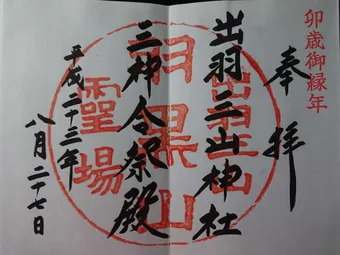 卯歳御縁年
奉拝
出羽三山神社
三神合祭殿
平成二十三年
八月二十七日
出羽三山
羽黒山
霊場